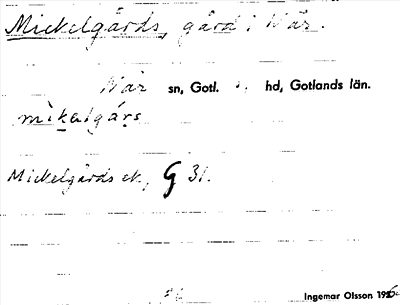 Mickelgårds, gård i När.
När sn, Gotl. hd, Gotlands län.
mikalgårs
Mickelgårds ek., G 31.
Ingemar Olsson 195